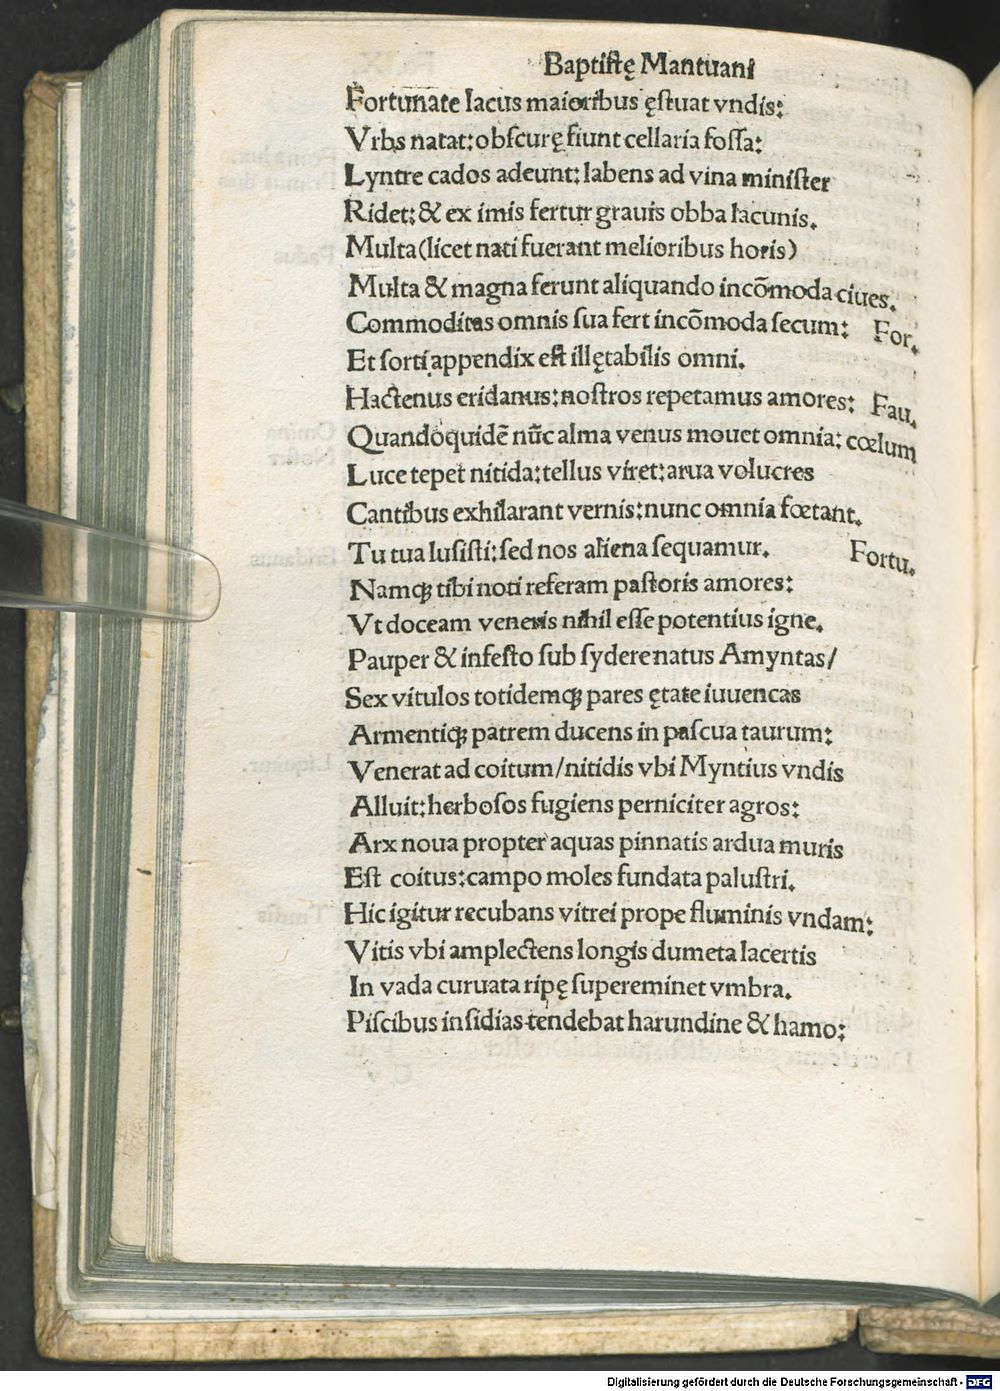 Baptistę Mantuani
Fortunate lacus maioribus ęstuat vndis:
Vrbs natat: obscurę fiunt cellaria fossa:
Lyntre cados adeunt: labens ad vina minister
Ridet: & ex imis fertur grauis obba lacunis.
Multa (licet nati fuerant melioribus horis)
Multa & magna ferunt aliquando incōmoda ciues.
Commoditas omnis sua fert incōmoda secum: For.
Et sorti appendix est illętabilis omni.
Hactenus eridanus: nostros repetamus amores: Fau.
Quandoquidē nūc alma venus mouet omnia: cœlum
Luce tepet nitida: tellus viret: arua volucres
Cantibus exhilarant vernis: nunc omnia fœtant.
Tu tua lusisti: sed nos aliena sequamur. Fortu.
Namq; tibi noti referam pastoris amores:
Vt doceam veneris nihil esse potentius igne.
Pauper & infesto sub sydere natus Amyntas/
Sex vitulos totidemq; pares ętate iuuencas
Armentiq; patrem ducens in pascua taurum:
Venerat ad coitum/nitidis vbi Myntius vndis
Alluit: herbosos fugiens perniciter agros:
Arx noua propter aquas pinnatis ardua muris
Est coitus: campo moles fundata palustri.
Hic igitur recubans vitrei prope fluminis vndam:
Vitis vbi amplectens longis dumeta lacertis
In vada curuata ripę supereminet vmbra.
Piscibus insidias tendebat harundine & hamo:
Digitalisierung gefördert durch die Deutsche Forschungsgemeinschaft - DFG